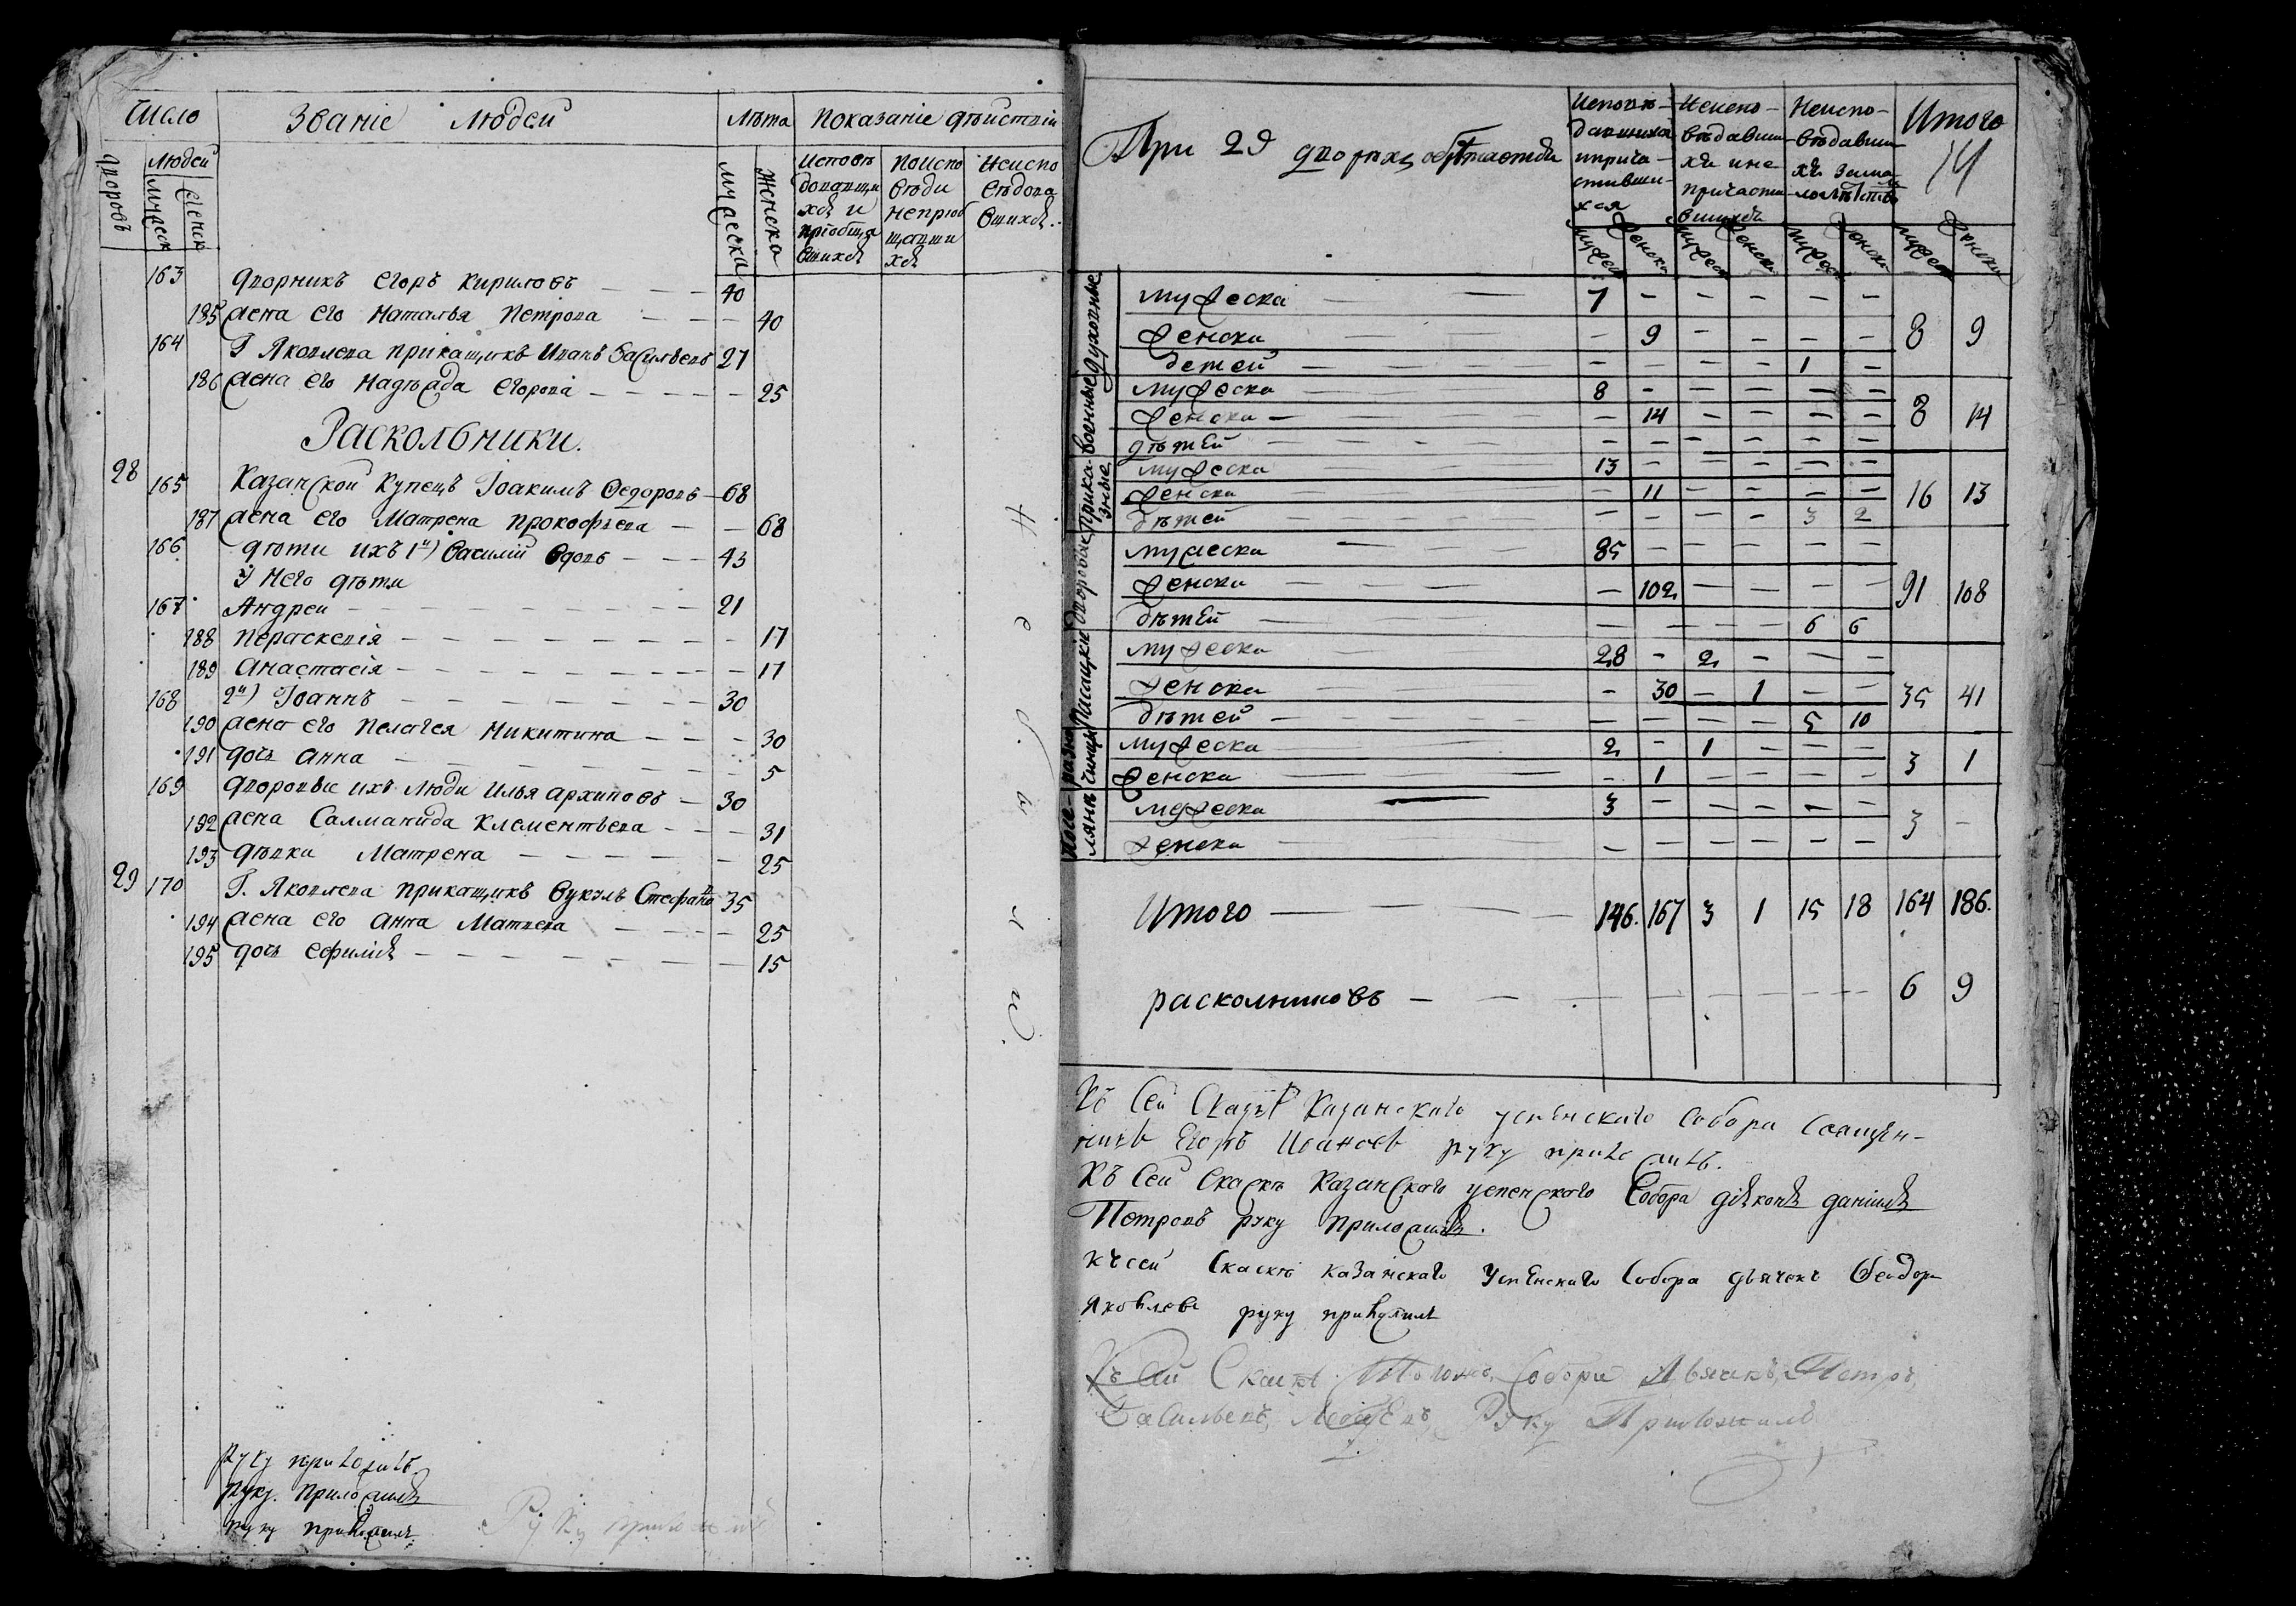 Число Званіе людей Лѣта Показаніе дѣйствій
дворовъ людей мужеска женска мужеска женска
Исповѣдовавшихся и пріобщавшихся
По исповѣди непріобщавшихся
Неисповѣдовавшихся
163 дворникъ Егоръ Кириловъ — — — 40
185 жена его Наталья Петрова — — — 40
164 Г Яковлева прикащикъ Иванъ Васильевъ 27
186 жена его Надѣжда Егорова — — — — — 25
Раскольники.
28 165 Казанской купецъ Іоакимъ Федоровъ — 68
187 жена его Матрена Прокофьева — — 68
166 дѣти ихъ 1й) Василій вдовъ — — — 43
У него дѣти
167 Андреи — — — — — — — — 21
188 Параскевія — — — — — — — — 17
189 Анастасія — — — — — — — — 17
168 2й) Іоаннъ — — — — — — — 30
190 жена его Пелагея Никитина — — — 30
191 дочь Анна — — — — — — — 5
169 дворовые ихъ люди Илья Архиповъ — 30
192 жена Саломанида Клементьева — — — 31
193 дѣвки Матрена — — — — — — 25
29 170 Г. Яковлева прикащикъ Вукулъ Стефано 35
194 жена его Анна Матвева — — — — 25
195 дочь Ефимія — — — — — — — — 15
Не были.
руку приложилъ.
руку приложилъ
руку приложилъ
Руку приложилъ
При 29 дворехъ обрѣтается
Исповѣдавшихся и причастившихся
Неисповѣдавшихъ и не причастившихъ
Неисповѣдавшихъ за малолѣтствъ
Итого
14
мужеск женска мужеск женска мужеск женска мужеск женска
духовные мужеска — — 7 — — — — —
женска — — — 9 — — — — 8 9
детей — — — — — — — 1 —
военные мужеска — — 8 — — — — —
женска — — — 14 — — — — 8 14
дѣтей — — — — — — — — —
приказные мужеска — — 13 — — — — —
женска — — — 11 — — — — 16 13
дѣтей — — — — — — 3 2
дворовые мужеска — — 85 — — — — —
женска — — — 102 — — — — 91 108
дѣтей — — — — — — 6 6
Пасацкіе мужеска — — 28 — 2 — — —
женска — — — 30 — 1 — — 35 41
дѣтей — — — — — — 5 10
разночинцы мужеска — — 2 — 1 — — —
женска — — — 1 — — — — 3 1
поселянъ мужеска — — 3 — — — — —
женска — — — — — — — — 3 —
Итого — — — — 146. 167 3 1 15 18 164 186.
раскольниковъ — — — — — — — — 6 9
Къ сей скаскѣ Казанскаго успенскаго собора священ-
никъ Егоръ Ивановъ руку приложилъ.
Къ сей скаскѣ Казанскаго успенскаго Собора діяконъ Даніилъ
Петровъ руку приложилъ.
къ сей скаскѣ казанскаго Успенскаго собора дьячекъ Феодоръ
Яковлевъ руку приложилъ
Къ сей скаскѣ Тогожъ Собора Дьячекъ Петръ
Васильевъ Руку Приложилъ